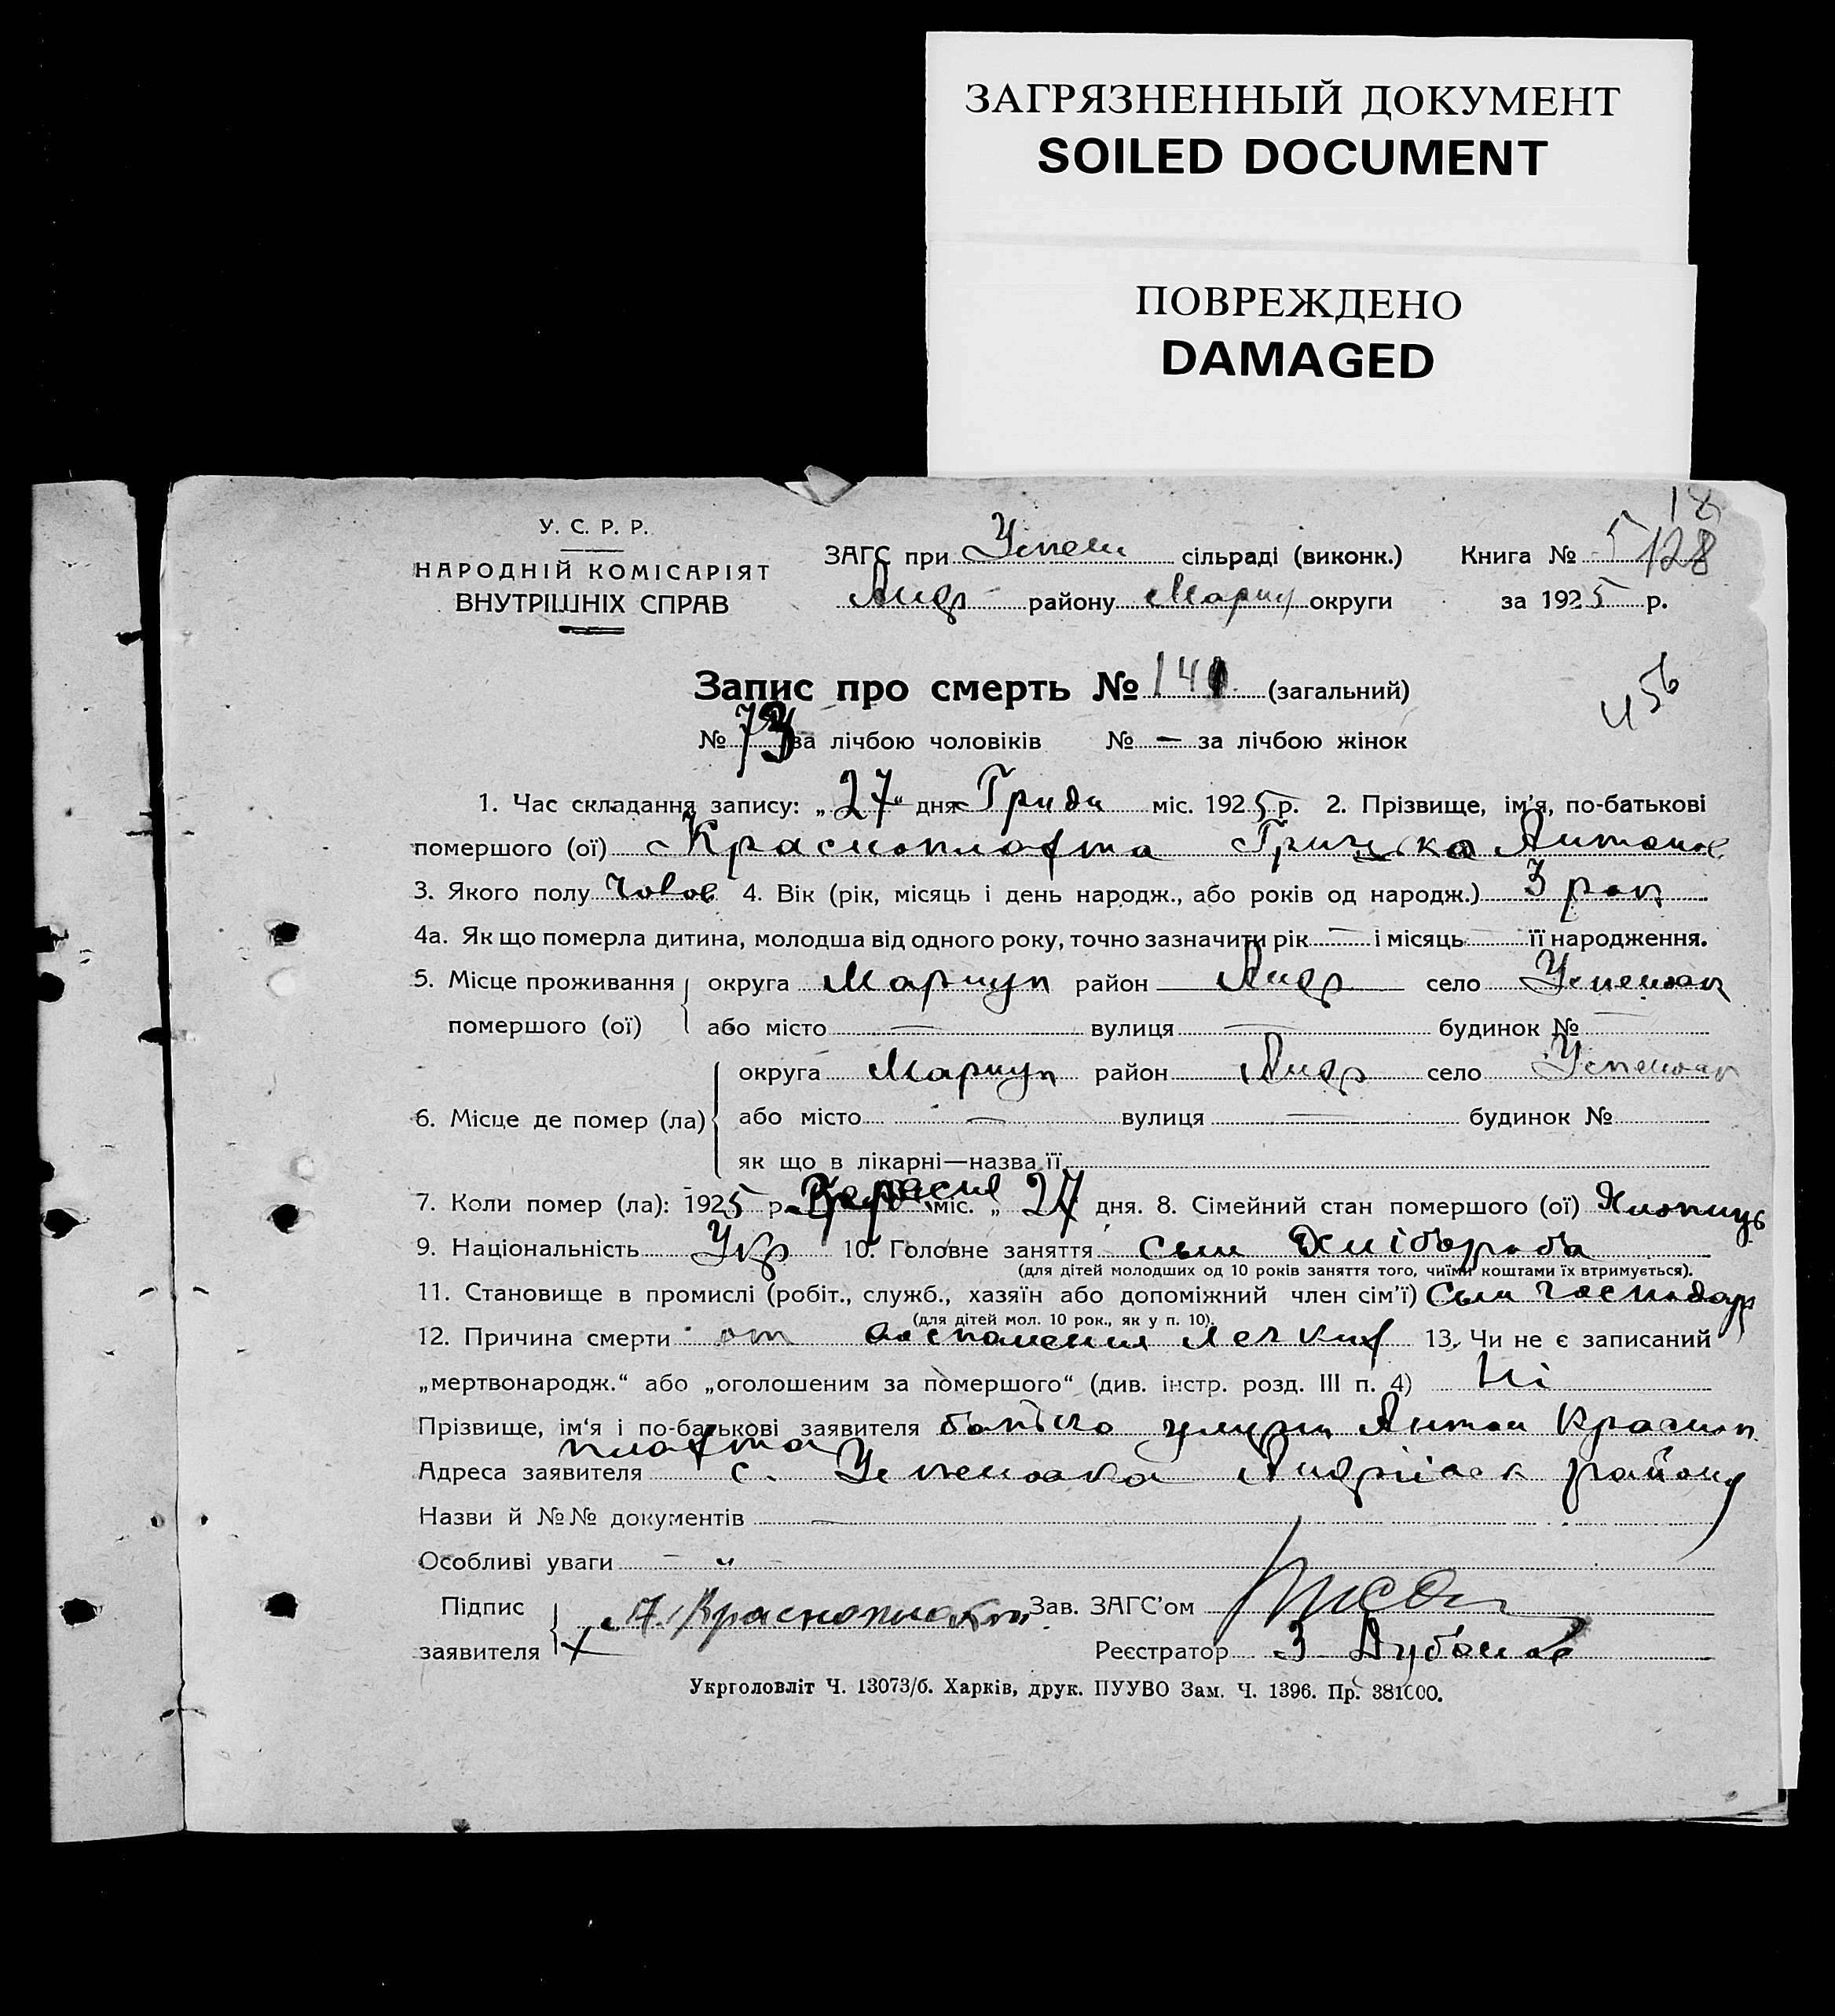 ЗАГРЯЗНЕННЫЙ ДОКУМЕНТ
SOILED DOCUMENT
ПОВРЕЖДЕНО
DAMAGED
18
У. С. Р. Р.
НАРОДНІЙ КОМІСАРІЯТ
ВНУТРІШНІХ СПРАВ
ЗАГС при Успен сільраді (виконк.) Книга № 5 128
Андр району Мариу округи за 1925 р.
Запис про смерть № 141 (загальний)
456
№ 73 за лічбою чоловіків № — за лічбою жінок
1. Час складання запису: „27" дня Грудн міс. 1925 р. 2. Прізвище, ім'я, по-батькові
помершого (ої) Краснoплахта Грицька Антонов
3. Якого полу Чолов 4. Вік (рік, місяць і день народж., або років од народж.) 3 рок
4а. Як що померла дитина, молодша від одного року, точно зазначити рік — і місяць її народження.
5. Місце проживання округа Мариуп район Андр село Успеновк
помершого (ої) або місто — вулиця — будинок № —
округа Мариуп район Андр село Успеновк
6. Місце де помер (ла) або місто — вулиця — будинок №
як що в лікарні—назва її
7. Коли помер (ла): 1925 р. міс. „27 дня. 8. Сімейний стан помершого (ої) Хлопиць
9. Національність Укр 10. Головне заняття сын Хлібороба
(для дітей молодших од 10 років заняття того, чиїми коштами їх втримується).
11. Становище в промислі (робіт., служб., хазяїн або допоміжний член сім'ї) Сын господар
(для дітей мол. 10 рок., як у п. 10).
12. Причина смерти от воспаления легких 13. Чи не є записаний
„мертвонародж." або „оголошеним за помершого" (див. інстр. розд. III п. 4) Ні
Прізвище, ім'я і по-батькові заявителя батько Антон Красноп
плахта
Адреса заявителя с. Успеновка Андріевк району
Назви й №№ документів —
Особливі уваги — „ —
Підпис А. Красноплахта Зав. ЗАГС'ом
заявителя Реєстратор З Дубонов
Укрголовліт Ч. 13073/б. Харків, друк. ПУУВО Зам. Ч. 1396. Пр. 381000.